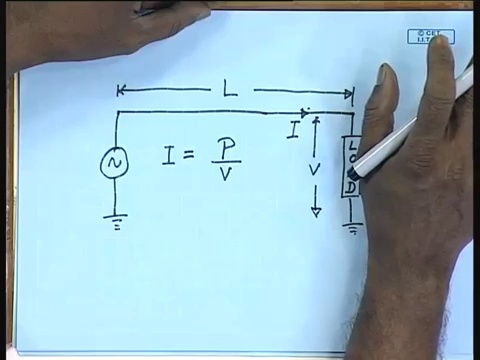 © CET
I.I.T.
L
I
I = P/V
V
LOAD